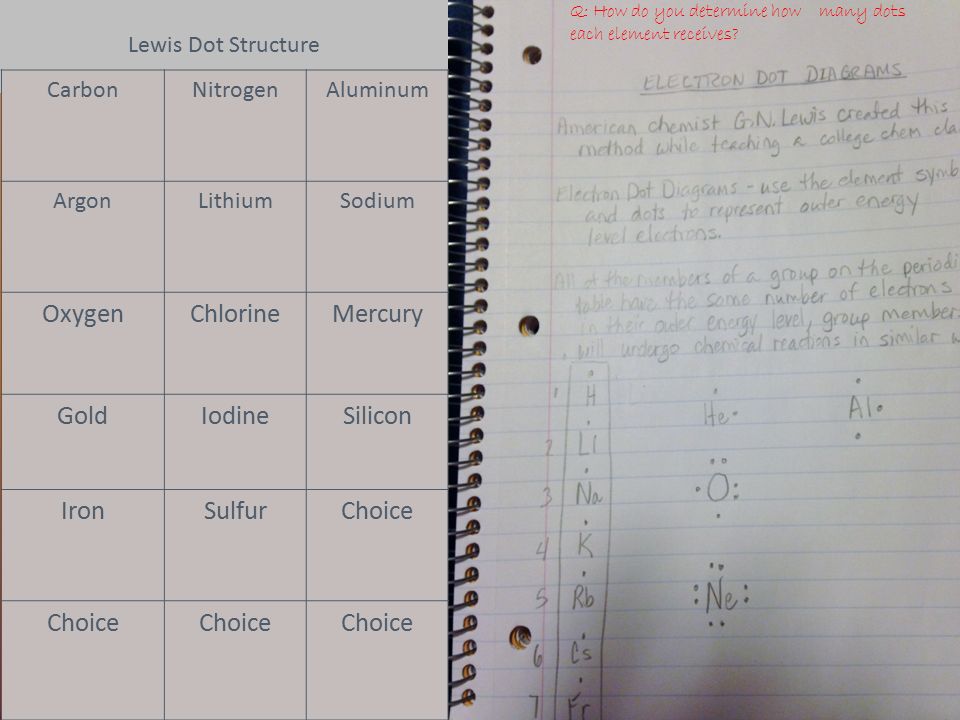 Lewis Dot Structure
Carbon Nitrogen Aluminum
Argon Lithium Sodium
Oxygen Chlorine Mercury
Gold Iodine Silicon
Iron Sulfur Choice
Choice Choice Choice
Q: How do you determine how many dots
each element receives?
ELECTRON DOT DIAGRAMS
American chemist G.N. Lewis created this
method while teaching a college chem cla
Electron Dot Diagrams - use the element symb
and dots to represent outer energy
level electrons.
All of the members of a group on the periodi
table have the same number of electrons
in their outer energy level, group members
will undergo chemical reactions in similar w
1 H He Al
2 Li
3 Na O
4 K
5 Rb Ne
6 Cs
7 Fr